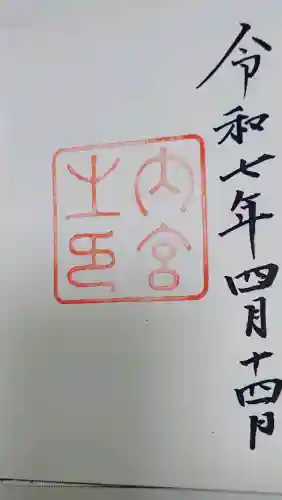 令和七年四月十四日
内宮
之印